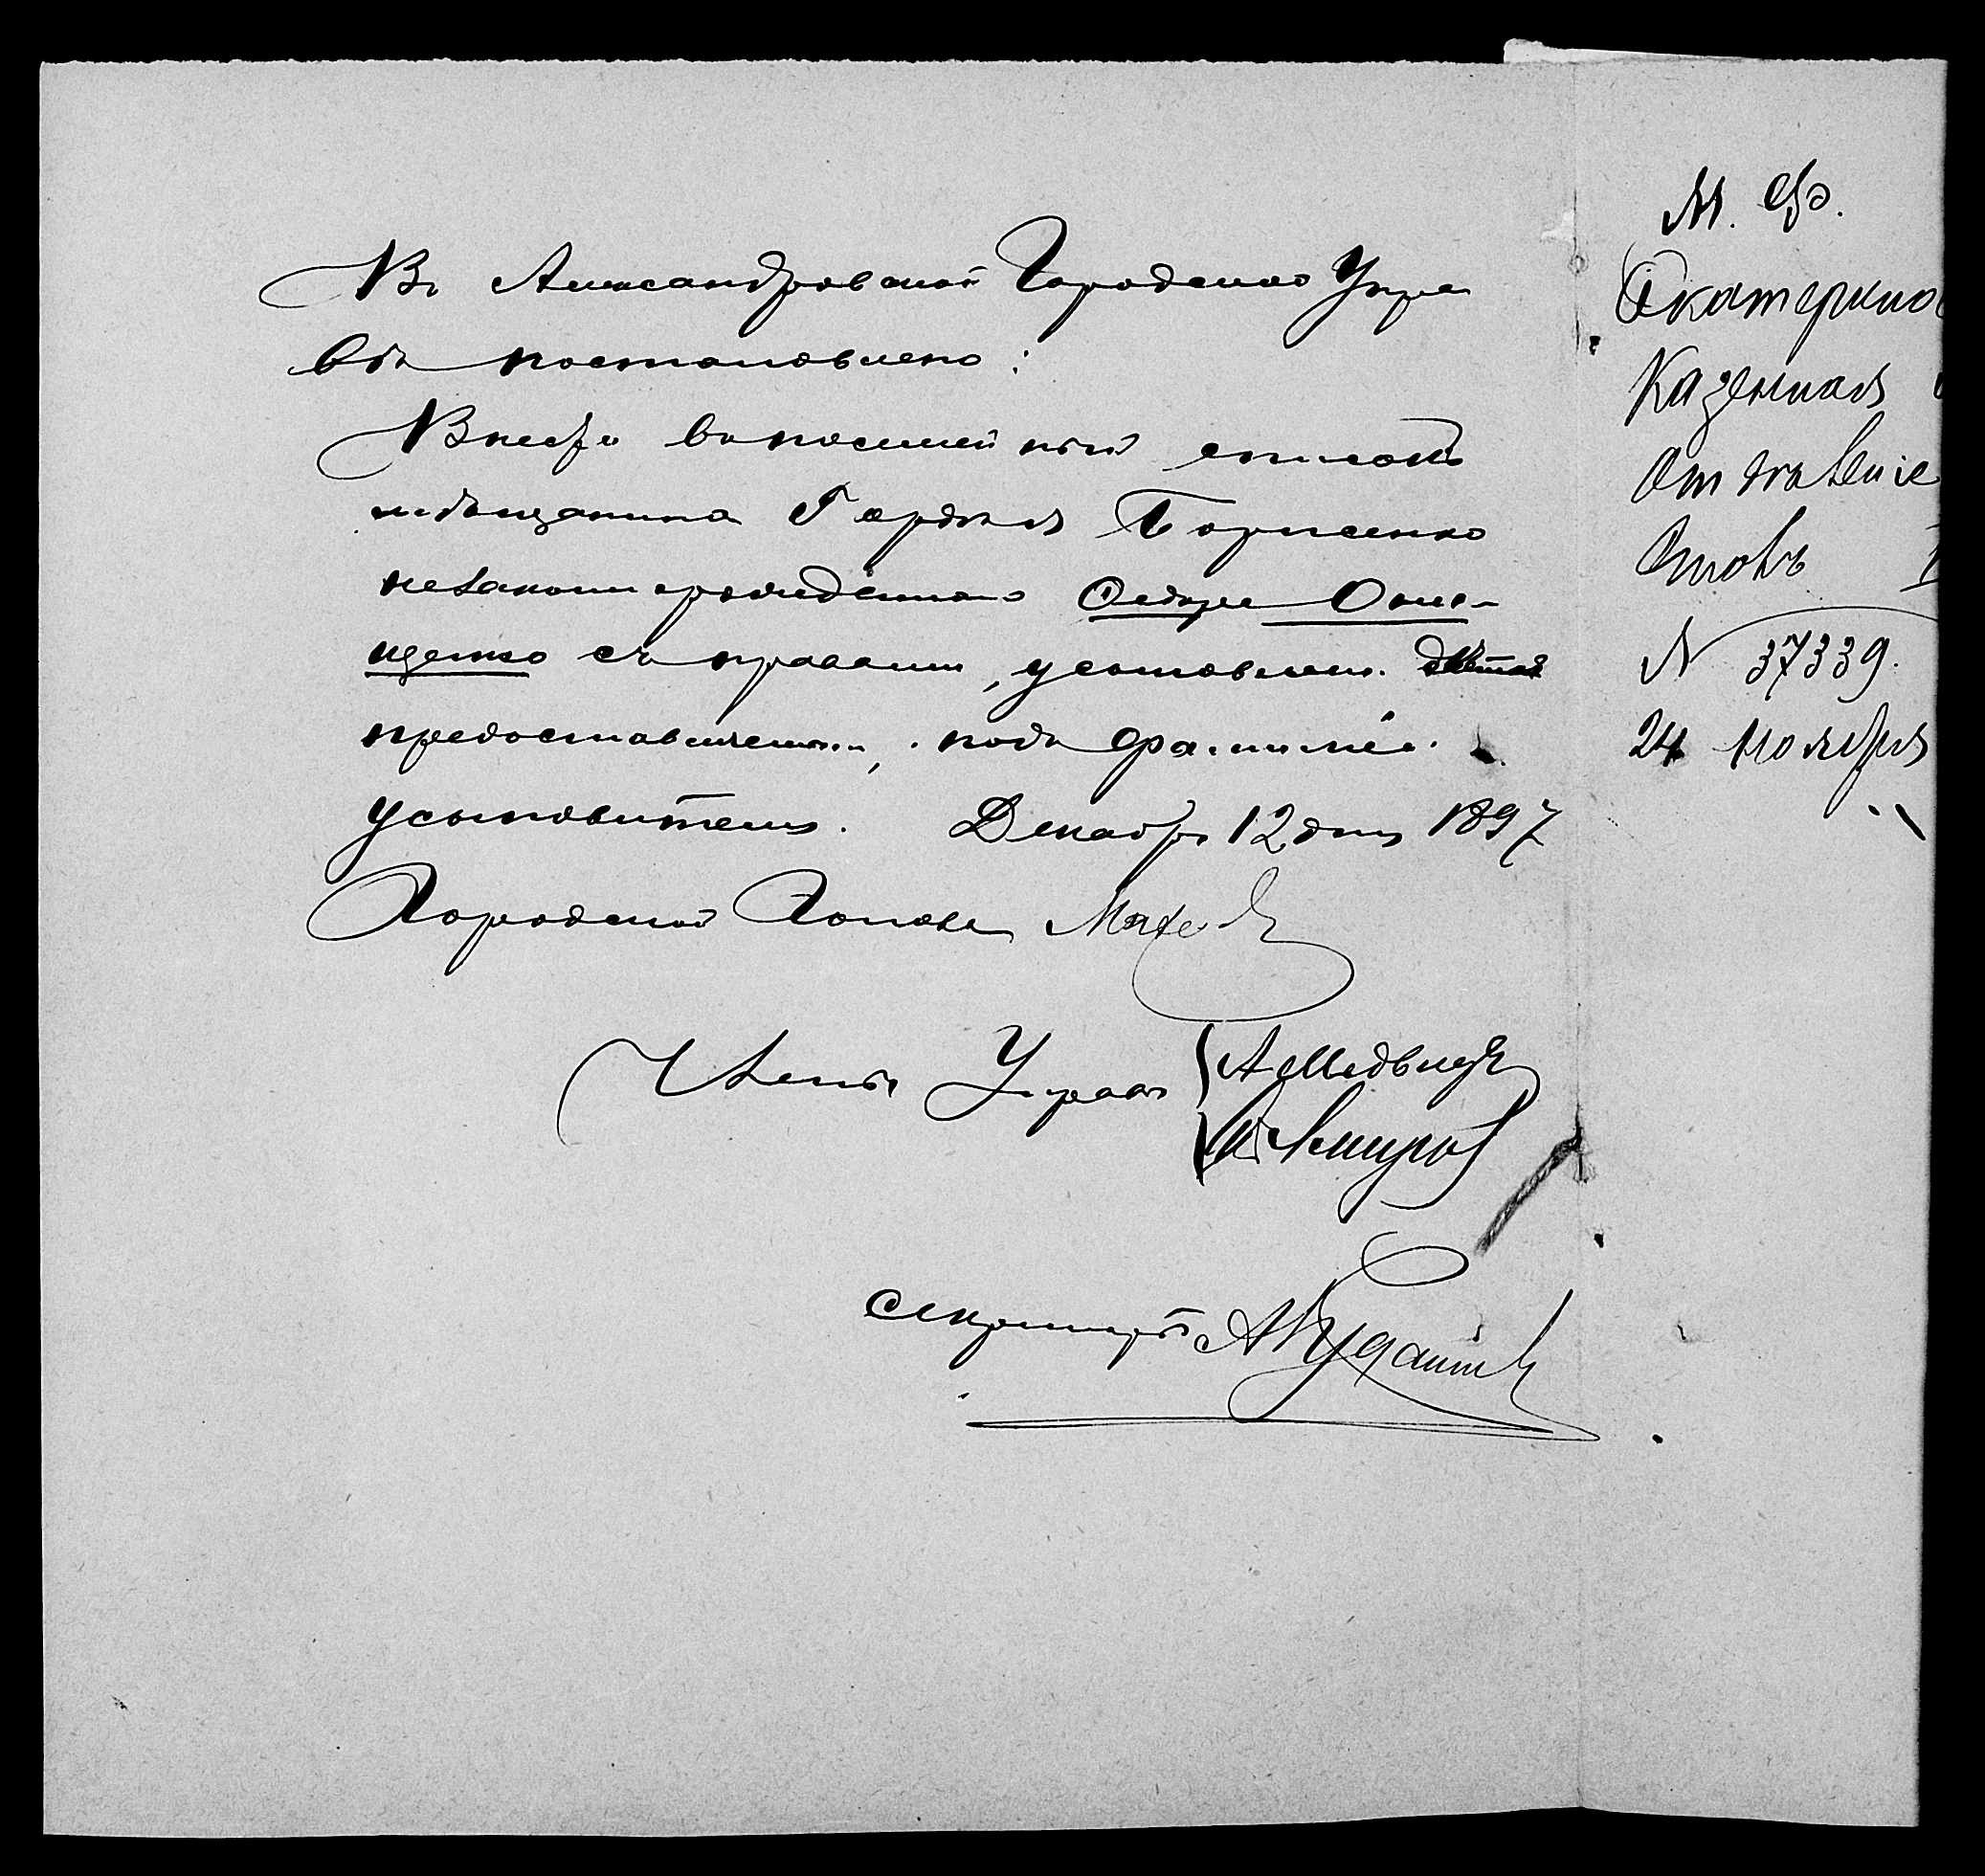 Въ Александровской Городской Упра
вѣ постановлено:
Внести въ посемейный списокъ
мѣщанина Гордѣя Борисенко
незаконнорожденнаго Ѳедора Они-
щенко съ правами, усыновлен.
предоставленными, подъ фамиліею
усыновителя. Декабря 12 дня 1897
Городской Голова
Члены Управы А Медвѣд
Секретарь А
М. Ф.
Екатеринос
Казенная
Отдѣленіе
Столъ I
№ 37339.
24 Ноября